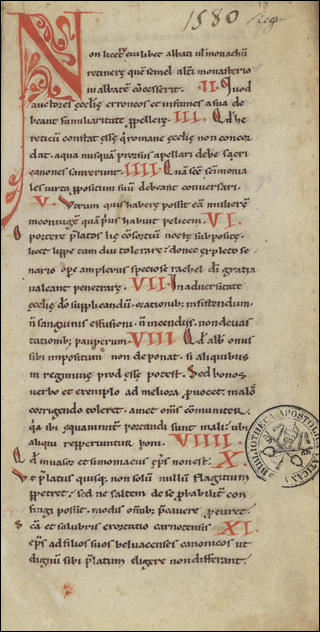 1580
Non licet cuilibet abbati vel monachum
retinere quem semel alteri monasterio
in abbatem concesserit. II. Quod
auctores ecclesie erroneos et infames a sua de
beant familiaritate propellere. III. Quod he
reticum constat esse qui romane ecclesie non concor
dat. aqua nusquam prorsus apellari debere sacri
canones sanxerunt. IIII. Quam sce sermonia
les iuxta propositum suum debeant conversari.
V. Utrum quis habere possit eam mulierem
in coniuge quam prius habuit pelicem. VI.
Oportere prelatos lie consortium nocte subposite
licet lippe tam diu tolerare: donec expleto se
nario ope amplexus speciose rachel dī gratia
valeant penetrare. VII. In adversitate
ecclesie do supplicandum. orationibus insistendum.
non sanguinis effusioni. non incendiis. non devas
tationibus pauperum. VIII Quod abbas onus
sibi impositum non deponat. si aliquibus
in regimine prodesse potest. Sed bonos
verbo et exemplo ad meliora provocet. malos
corrigendo toleret. amet omnes communiter.
quia ibi equanimiter portandi sunt mali: ubi
aliqui repperiuntur boni. VIIII.
Quod invasor et simoniacus eps non est. X.
Ut prelatus quisque non solum nullum flagitium
perpetret. sed ne saltem de se probabiliter con
fingi possit. modis omnibus precavere procuret.
Sca et salubris exortatio carnotensis XI.
epi ad filios suos belvacenses canonicos ut
dignum sibi prelatum eligere non differant.
BIBLIOTHECA APOSTOLICA VATICANA